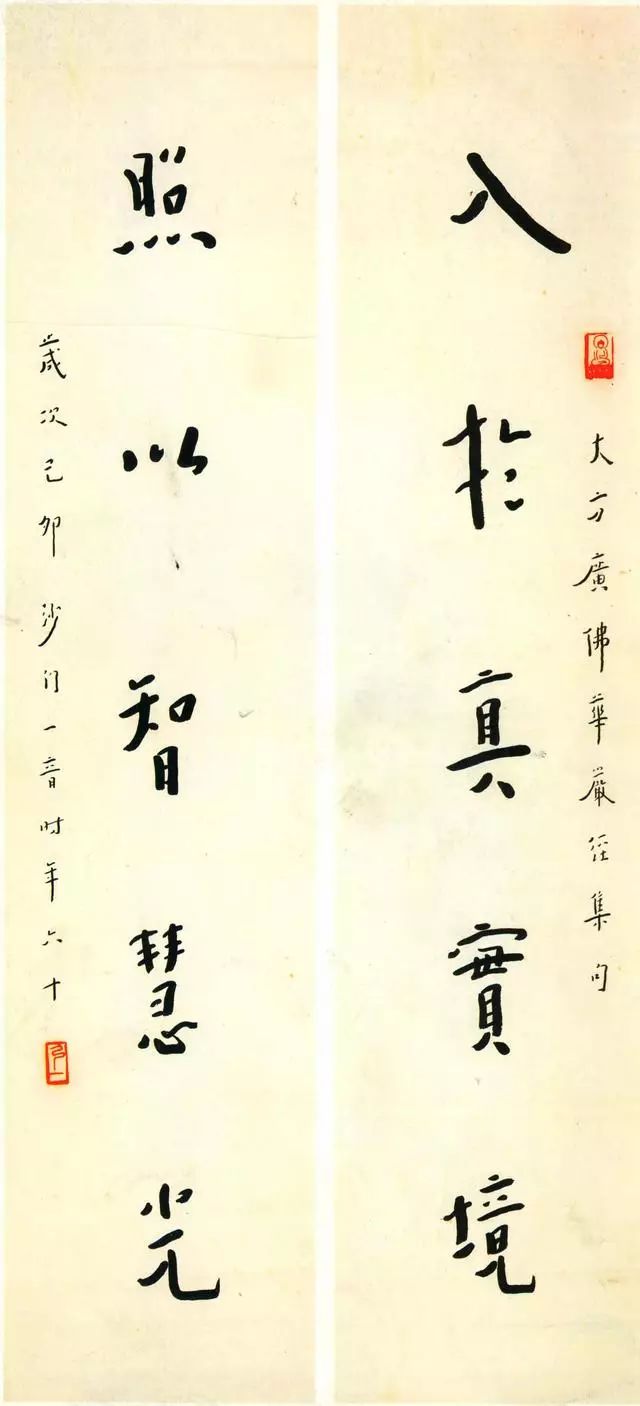 入於真實境
大方廣佛華嚴經集句
照以智慧光
歲次己卯沙門一音時年六十